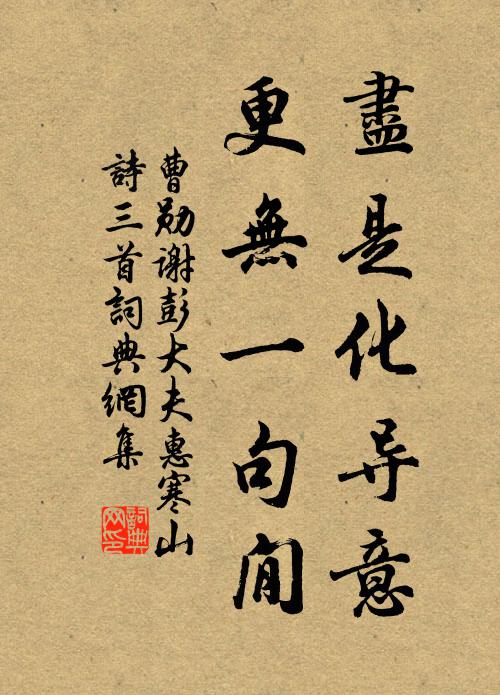 盡是化导意
更無一句閒
曹勋谢彭大夫惠寒山
詩三首詞典網集
詞典
网印